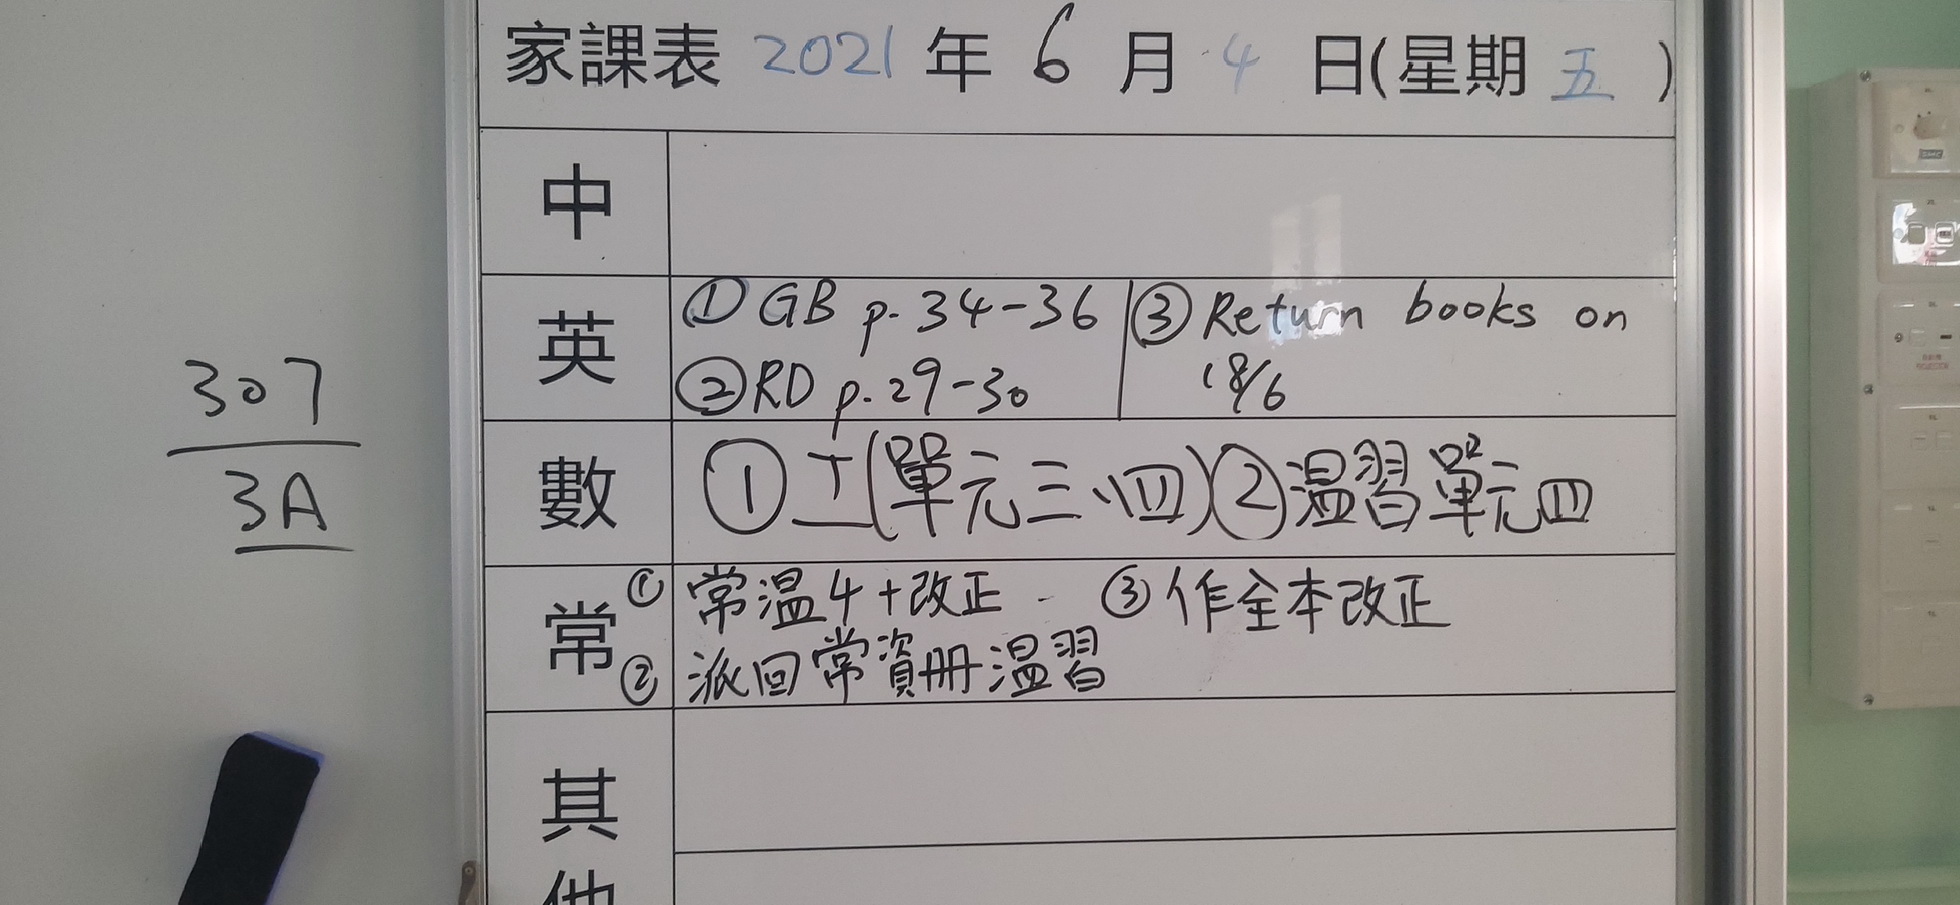 家課表 2021 年 6 月 4 日(星期 五 )
中
英
① GB p. 34-36
② RD p. 29-30
③ Return books on
18/6
數
① 工(單元三、四) ② 温習單元四
常
① 常温4+改正
② 派回常資冊温習
③ 作全本改正
其
他
307
3A